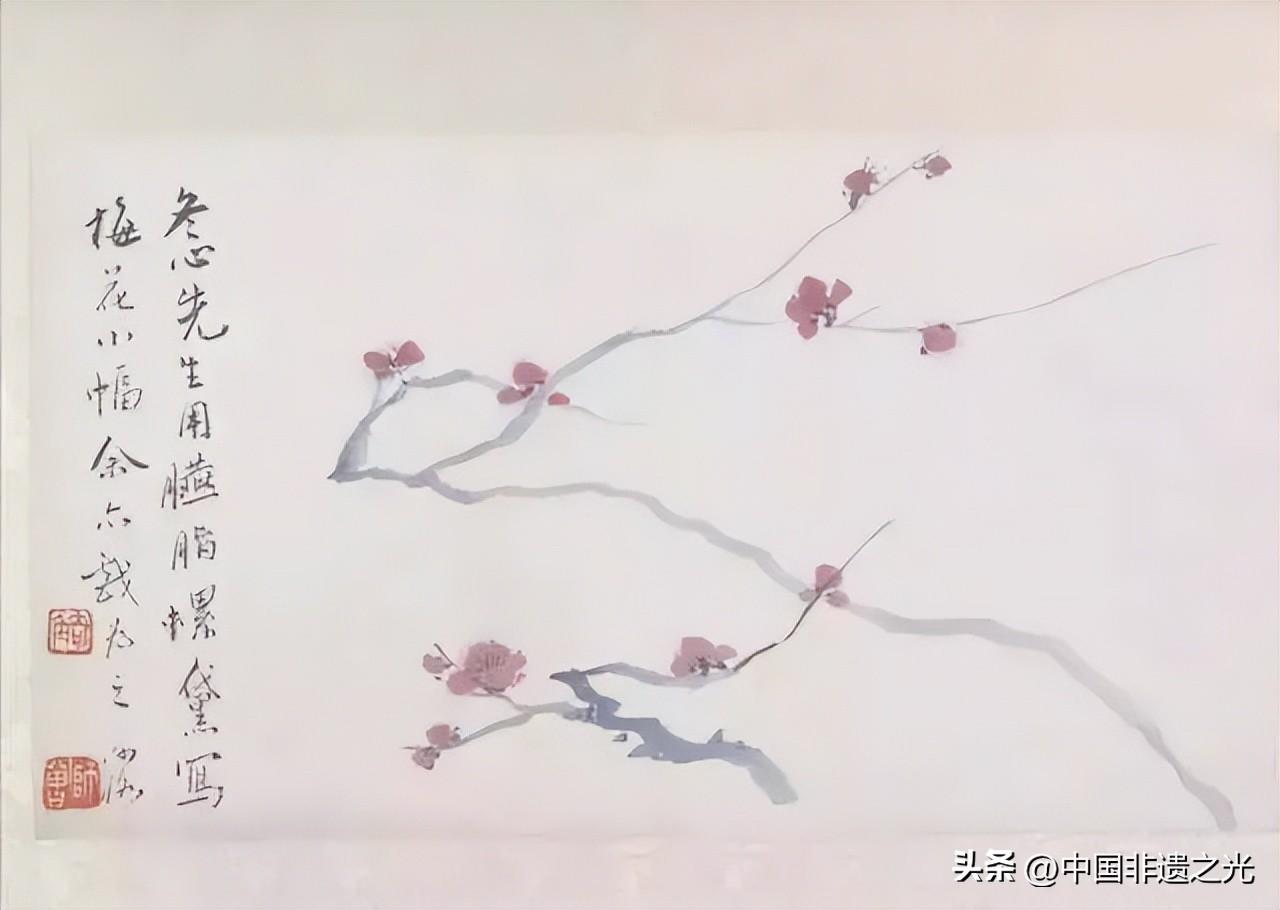 冬心先生用臙脂螺黛寫
梅花小幅余亦戲為之
師曾
头条 @中国非遗之光